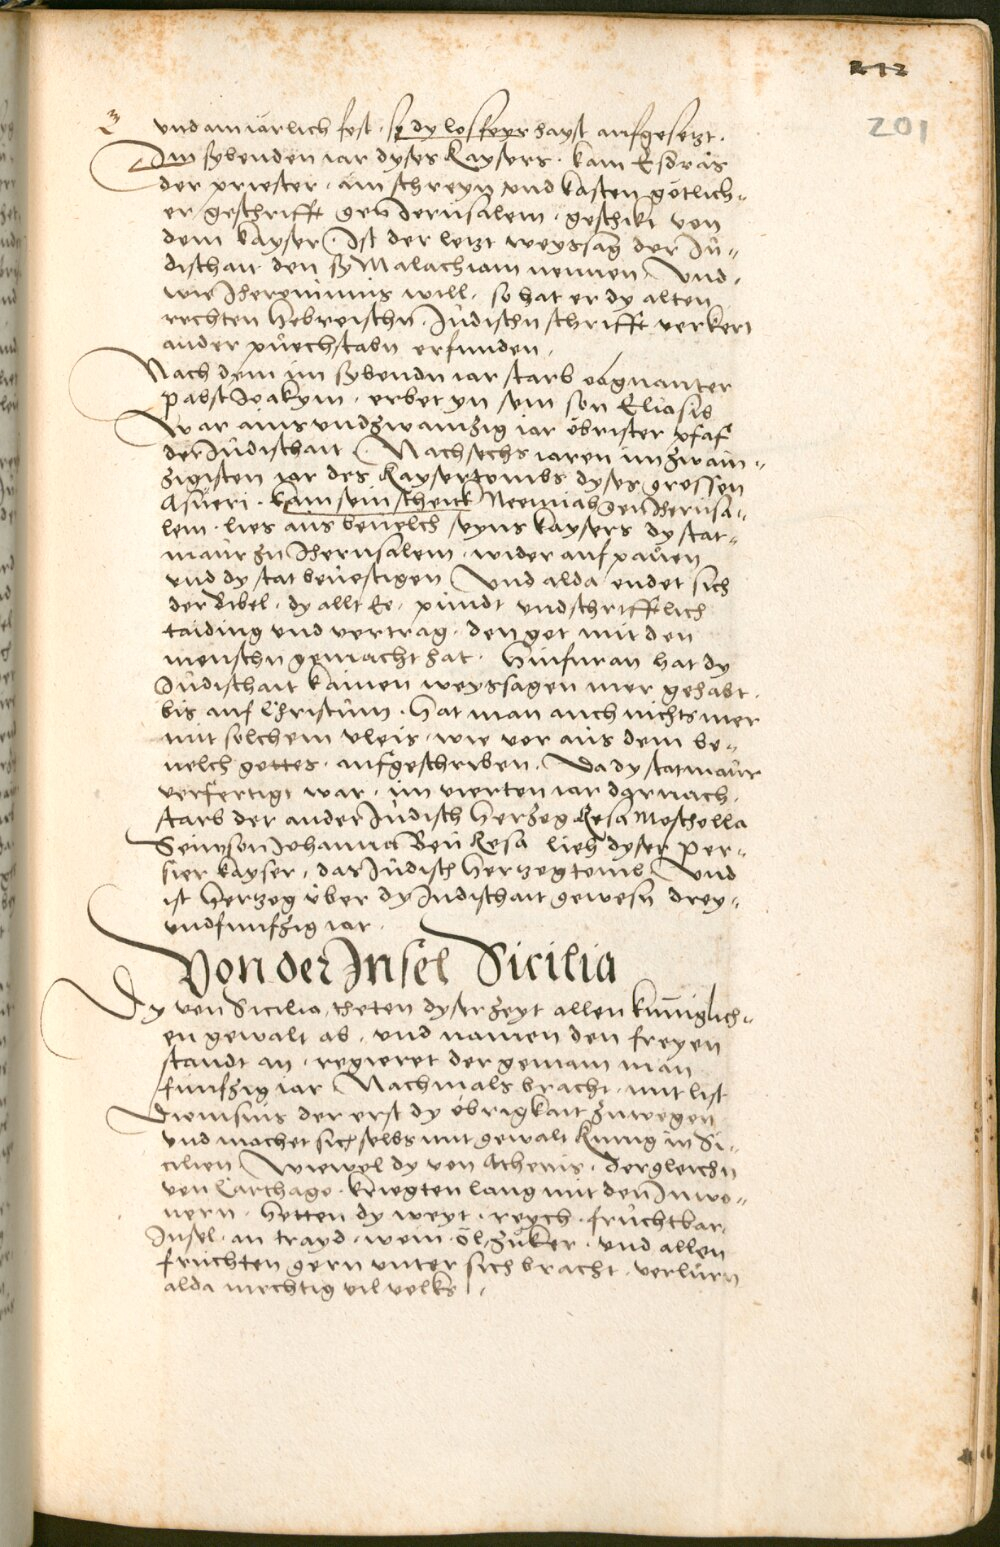 212
201
und ain iärlich fest · sy dy losfeyr hayst aufgesetzt ·
Im sybenden iar dyses Kaysers · kam Esdras
der priester · ain schreyn und kasten götlich=
er geschrifft gen Jerusalem · geschikt von
dem kayser · Ist der letzt weyssag der Jü=
dischait den sy Malachiam nennen Und ·
wie Iheronimus will · so hat er dy alten
rechten Hebreischn · Jüdischn schrifft verkert
ander püechstabn erfunden ·
Nach dem im sybendn iar starb
pabst Joakym · erbet yn sein son Eliasib
War ains und zwainzig iar öbrister pfaf
der Jüdischait · Nach sechs iaren im zwain=
zigisten iar des Kaysertombs dyses grossen
Asueri · kam sein schenck Neemias gen Iherusa=
lem · lies aus bevelch seyns kaysers dy stat=
maur zu Iherusalem · wider auf pauen
und dy stat bevestigen Und alda endet sich
der Bibel · dy allt Ee · pündt und schrifftlich
taiding und vertrag · den got mit den
menschn gemacht hat · Hinfuran hat dy
Jüdischait kainen weyssagen mer gehabt ·
bis auf Christum · Hat man auch nichts mer
mit solchem vleis · wie vor aus dem be=
velch gottes · aufgeschriben · Da dy statmaur
verfertigt war · im vierten iar darnach ·
starb der ander Jüdisch Herzog Resa Moscholla
Seim son Johanna Ben Resa lieh dyser Per=
sier kayser · das Jüdisch Hertzogtomb Und
ist Hertzog über dy Jüdischait gewesn drey=
undfunfzig iar ·
Von der Insel Sicilia
Dy von Sicilia theten dyser zeyt allen kunniglich=
en gewalt ab · und namen den freyen
standt an · regieret der gemain man
funfzig iar Nachmals bracht · mit list
Dionisius der erst dy öbrigkait zuwegen
und machet sich selbs mit gewalt Kunig in Si=
cilien Wiewol dy von Athenis · dergleichn
von Carthago · kriegten lang mit den Inwo=
nern · Hetten dy weyt · reych · fruchtbar
Insel · an trayd · wein · öl, zuker · und allen
fruchten gern unter sich bracht · verlurn
alda mechtig vil volks ·